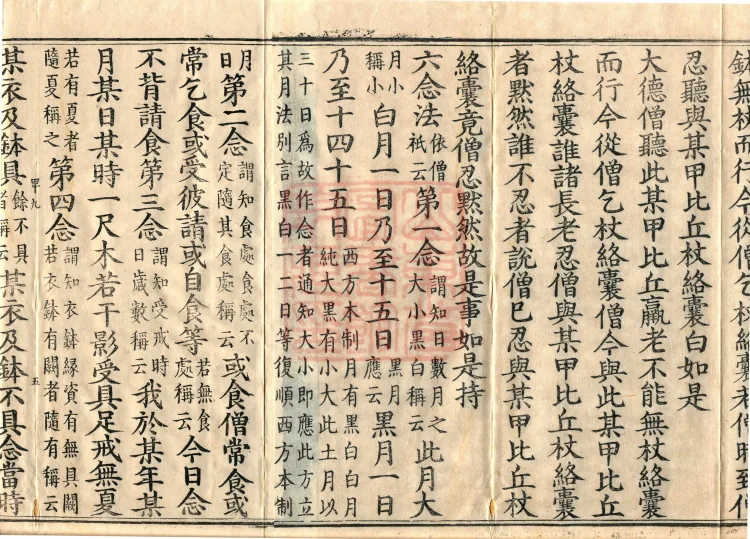 鉢無杖而行今從僧乞杖絡囊若僧時到僧
忍聽與某甲比丘杖絡囊白如是
大德僧聽此某甲比丘羸老不能無杖絡囊
而行今從僧乞杖絡囊僧今與此某甲比丘
杖絡囊誰諸長老忍僧與某甲比丘杖絡囊
者默然誰不忍者說僧已忍與某甲比丘杖
絡囊竟僧忍默然故是事如是持
六念法依僧祇云第一念謂知日數月之大小黑白稱云此月大
月小稱小白月一日乃至十五日黑月應云黑月一日
乃至十四十五日西方本制月有黑白白月純大黑有小大此土月以
三十日爲故作念者通知大小即應此方立其月法別言黑白一二日等復順西方本制
月日第二念謂知食處食處不定隨其食處稱云或食僧常食或
常乞食或受彼請或自食等若無食處稱云今日念
不背請食第三念謂知受戒時日歲數稱云我於某年某
月某日某時一尺木若干影受具足戒無夏
若有夏者隨夏稱之第四念謂知衣鉢緣資有無具闕若衣鉢有闕者隨有稱云
九 五
某衣及鉢具餘不具者稱云某衣及鉢不具念當時